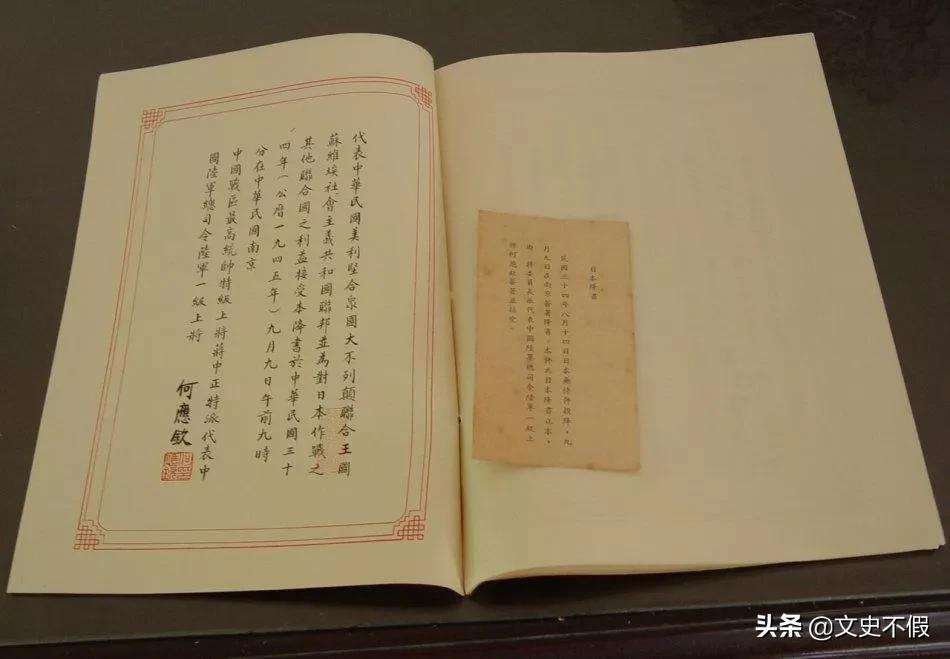 日本降書
民國三十四年八月十四日日本無條件投降，九
月九日在南京簽署降書。本件為日本降書正本，
由 蔣委員長派代表中國陸軍總司令陸軍一級上
將何應欽簽署並接受。
代表中華民國美利堅合眾國大不列顛聯合王國
蘇維埃社會主義共和國聯邦並為對日本作戰之
其他聯合國之利益接受本降書於中華民國三十
四年（公曆一九四五年）九月九日午前九時
分在中華民國南京
中國戰區最高統帥特級上將蔣中正特派代表中
國陸軍總司令陸軍一級上將
何應欽
头条 @文史不假